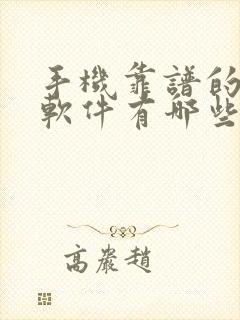 手機靠譜的
軟件有哪些
高嚴趙